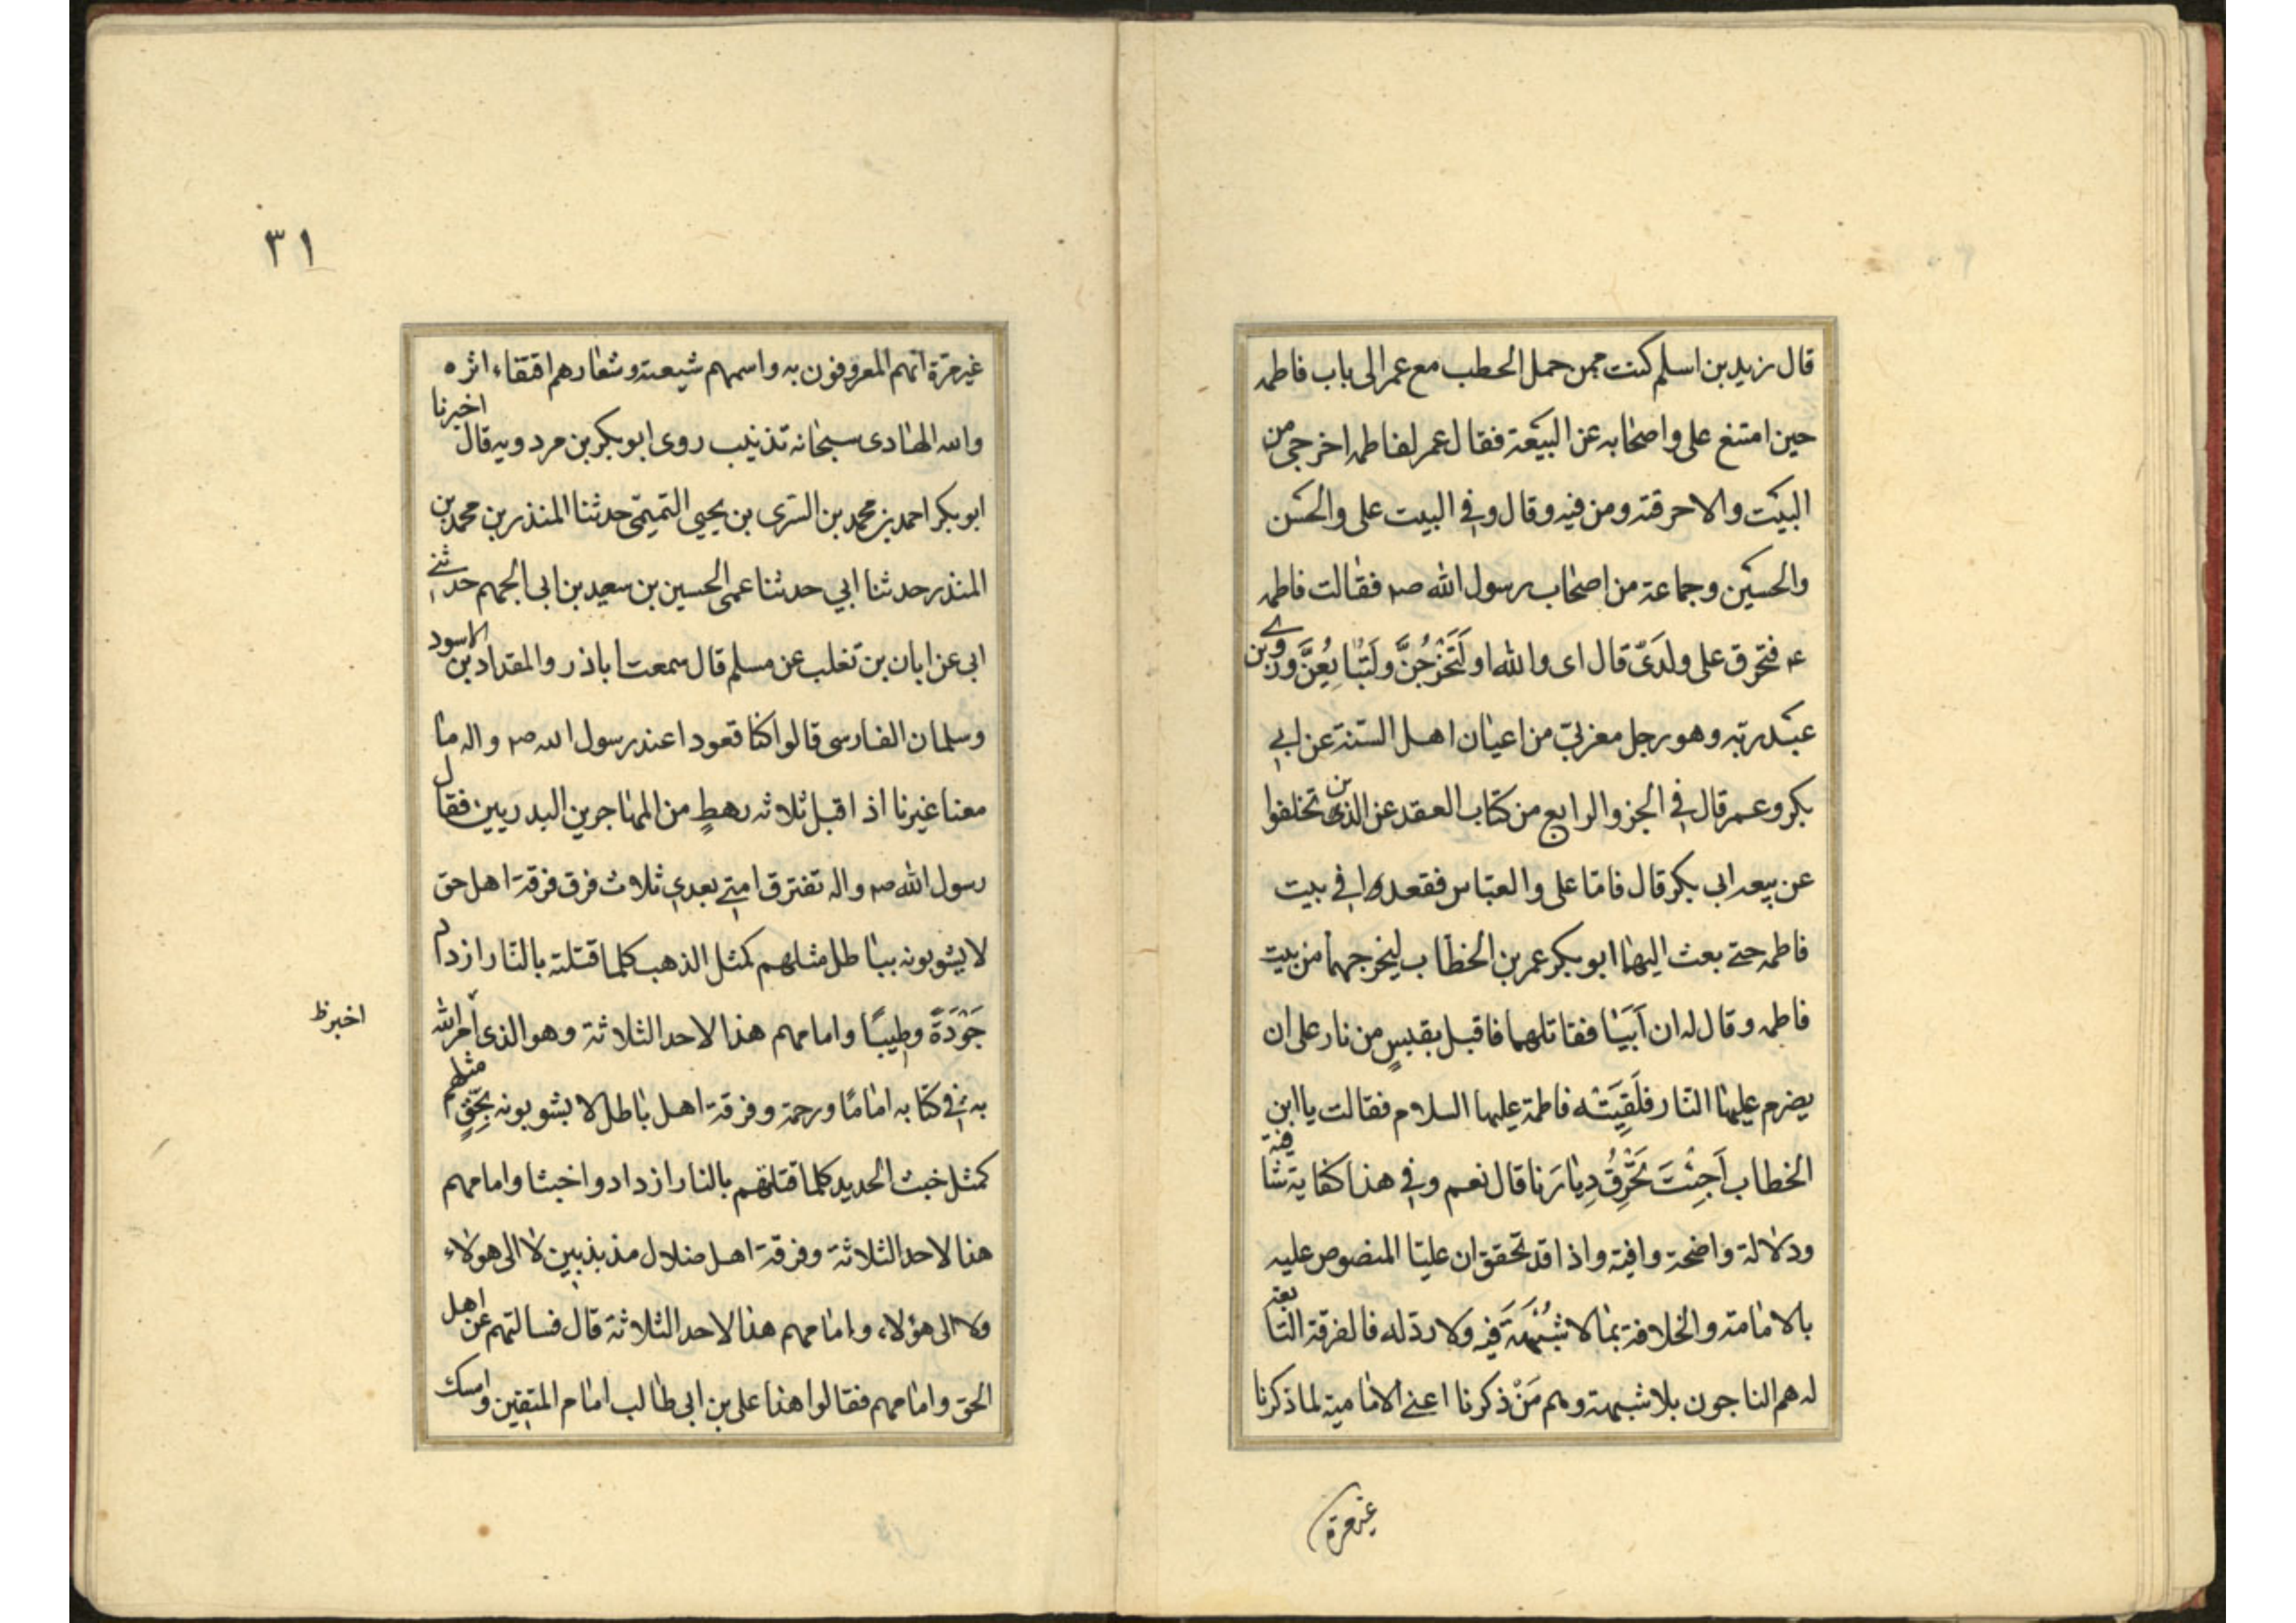 قال زيد بن اسلم كنت ممن حمل الحطب مع عمر الى باب فاطمه
حين امتنع على واصحابه عن البيعة فقال عمر لفاطمه اخرجى من
البيت والا حرقته ومن فيه وقال وفي البيت على والحسن
والحسين وجماعة من اصحاب رسول الله ص فقالت فاطمه
ع فتحرق على ولدى قال اى والله او لَتَخْرُجُنَّ ولَتُبايِعُنَّ وروى بن
عبد ربه وهو رجل مغربىّ من اعيان اهل السّنة عن ابي
بكر وعمر قال في الجزو الرابع من كتاب العقد عن الذين تخلفوا
عن بيعه ابى بكر قال فامّا على والعبّاس فقعدوا في بيت
فاطمه حتى بعث اليهما ابو بكر عمر بن الخطاب ليخرجهما من بيت
فاطمه وقال له ان اَبَيَا فقاتلهما فاقبل بقبسٍ من نار على ان
يضرم عليهما النّار فلَقِيَتْه فاطمة عليها السلام فقالت يا ابن
الخطاب اَجِئْتَ تُحَرِّقُ دِيارَنا قال نعم وفي هذا كفاية شافية
ودلالة واضحة وافية واذا قد تحقق ان عليّا المنصوص عليه
بالامامة والخلافة بمالا شُبْهَةَ فيه ولا ردّ له فالفرقة التابعة
له هم الناجون بلا شبهة وهم مَنْ ذكرنا اعنى الامامية لما ذكرنا
غير مرة
٣١
غير مرّة انّهم المعروفون به واسمهم شيعته وشعارهم اقتفاء اثره
والله الهادى سبحانه تذنيب روى ابو بكر بن مردويه قال اخبرنا
ابو بكر احمد بن محمد بن السّرى بن يحيى التميمّى حدثنا المنذر بن محمد بن
المنذر حدثنا ابي حدثنا عمى الحسين بن سعيد بن ابى الجهم حدثنى
ابى عن ابان بن تغلب عن مسلم قال سمعت اباذر والمقداد بن الاسود
وسلمان الفارسى قالوا كنّا قعودا عند رسول الله ص واله ما
معنا غيرنا اذ اقبل ثلاثه رهطٍ من المهاجرين البدريين فقال
رسول الله ص واله تفترق امتي بعدي ثلاث فرق فرقة اهل حق
لا يشوبونه بباطل مثلهم كمثل الذهب كلما فتنته بالنّار ازداد
جَوْدَةً وطِيبًا وامامهم هذا لاحد الثلاثة وهو الذى امر الله
اخبر ظ
به في كتابه امامًا ورحمة وفرقة اهل باطل لا يشوبونه بحَقٍّ مثلهم
كمثل خبث الحديد كلما فتنتهم بالنار ازدادوا خبثا وامامهم
هذا لاحد الثلاثة وفرقة اهل ضلال مذبذبين لا الى هولاء
ولا الى هؤلاء وامامهم هذا لاحد الثلاثة قال فسالتهم عن اهل
الحق وامامهم فقالوا هذا على بن ابى طالب امام المتقين وامسك